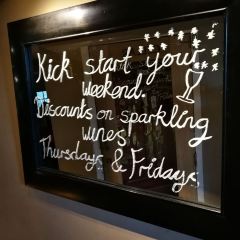 Kick start your
weekend.
Discounts on sparkling
wines
Thursdays & Fridays